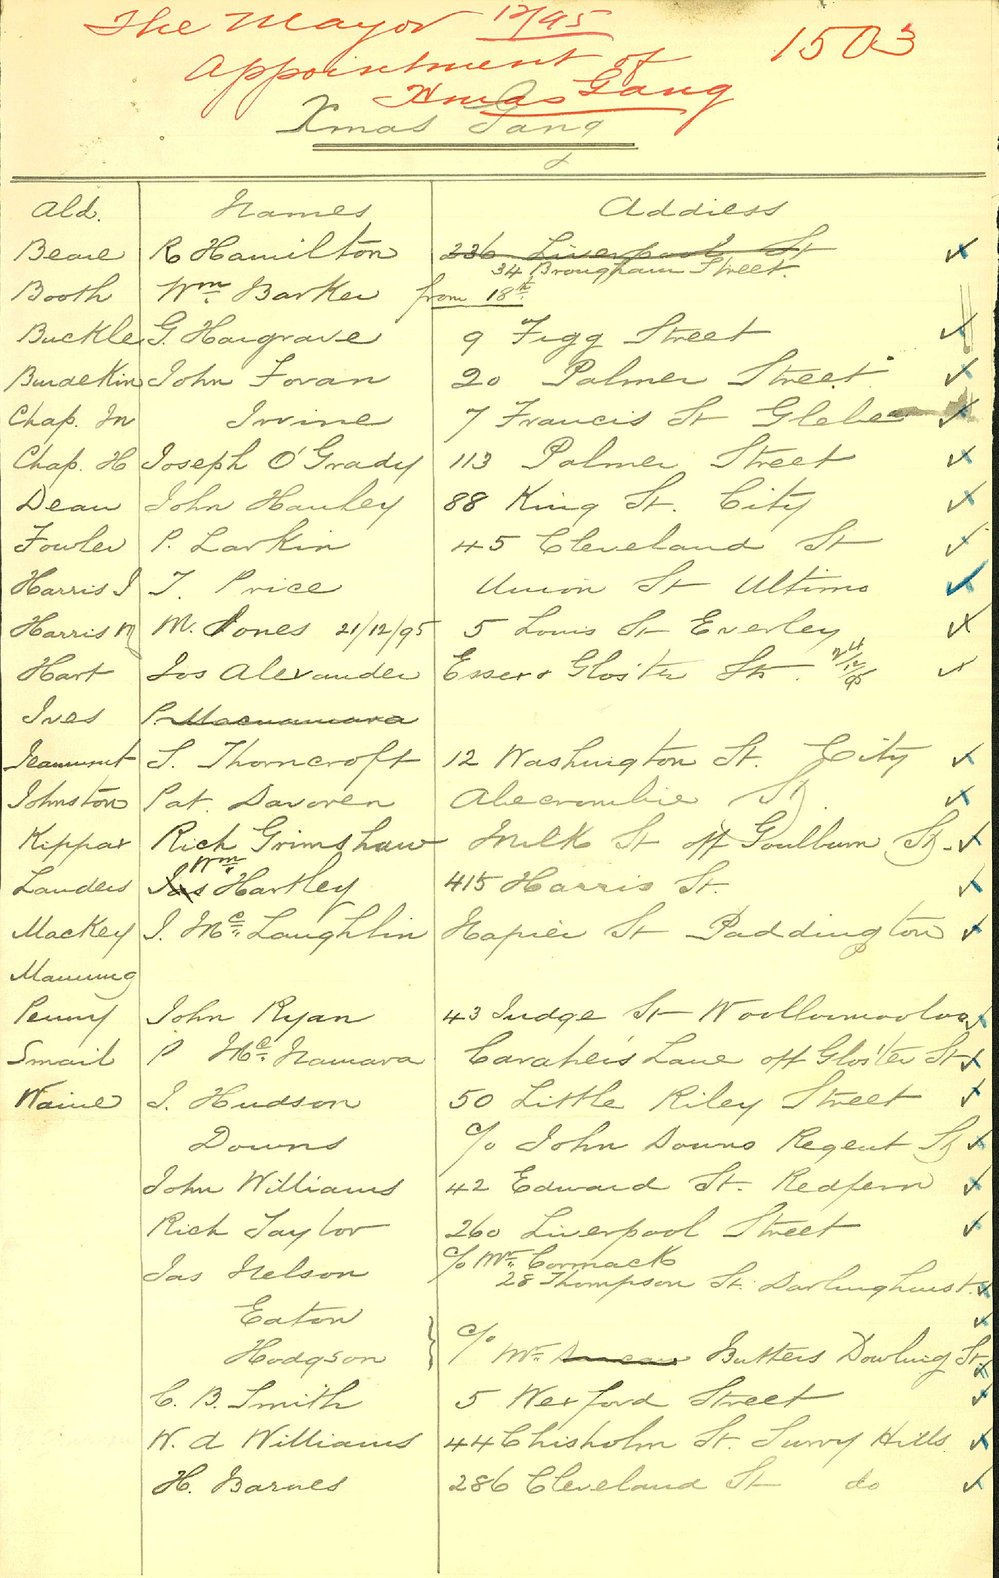 The Mayor 12/95
1503
Appointment of
Xmas Gang
Xmas Gang
Ald. Names Address
Beare R Hamilton 236 Liverpool St
34 Brougham Street
Booth Wm. Barker from 18th
Buckle G. Hargrave 9 Figg Street
Burdekin John Foran 20 Palmer Street
Chap. Jn Irvine 7 Francis St Glebe
Chap. H Joseph O'Grady 113 Palmer Street
Dean John Hanley 88 King St. City
Fowler P. Larkin 45 Cleveland St
Harris J T. Price Union St Ultimo
Harris M M. Jones 21/12/95 5 Louis St Everley
Hart Jos Alexander Essex & Gloster Sts. 24/12/95
Ives P. Macnamara
Jeanneret S. Thorncroft 12 Washington St. City
Johnston Pat. Davoren Abecrombie St
Kippax Rich Grimshaw Milk St off Goulburn St.
Wm.
Landers Jas Hartley 415 Harris St.
Mackey J. Mc. Laughlin Napier St Paddington
Manning
Penny John Ryan 43 Judge St Woolloomooloo
Smail P Mc. Namara Caraher's Lane off Glos'ter St
Waine J. Hudson 50 Little Riley Street
Downs c/o John Downs Regent St
John Williams 42 Edward St. Redfern
Rich Taylor 260 Liverpool Street
Jas Nelson c/o Mr. Cormack
28 Thompson St. Darlinghurst.
Eaton
Hodgson c/o Mr. Duncan Butters Dowling St.
C. B. Smith 5 Wexford Street
W. A Williams 44 Chisholm St. Surry Hills
H. Barnes 286 Cleveland St do